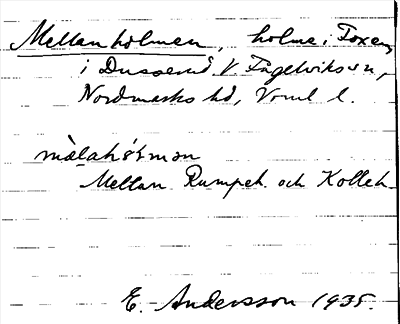 Mellanholmen, holme i Foxen,
i Dusserud V. Fågelviks sn,
Nordmarks hd, Vrml l.
mèlahɷ́rman
Mellan Rumpeh. och Kolleh.
E. Andersson 1935.